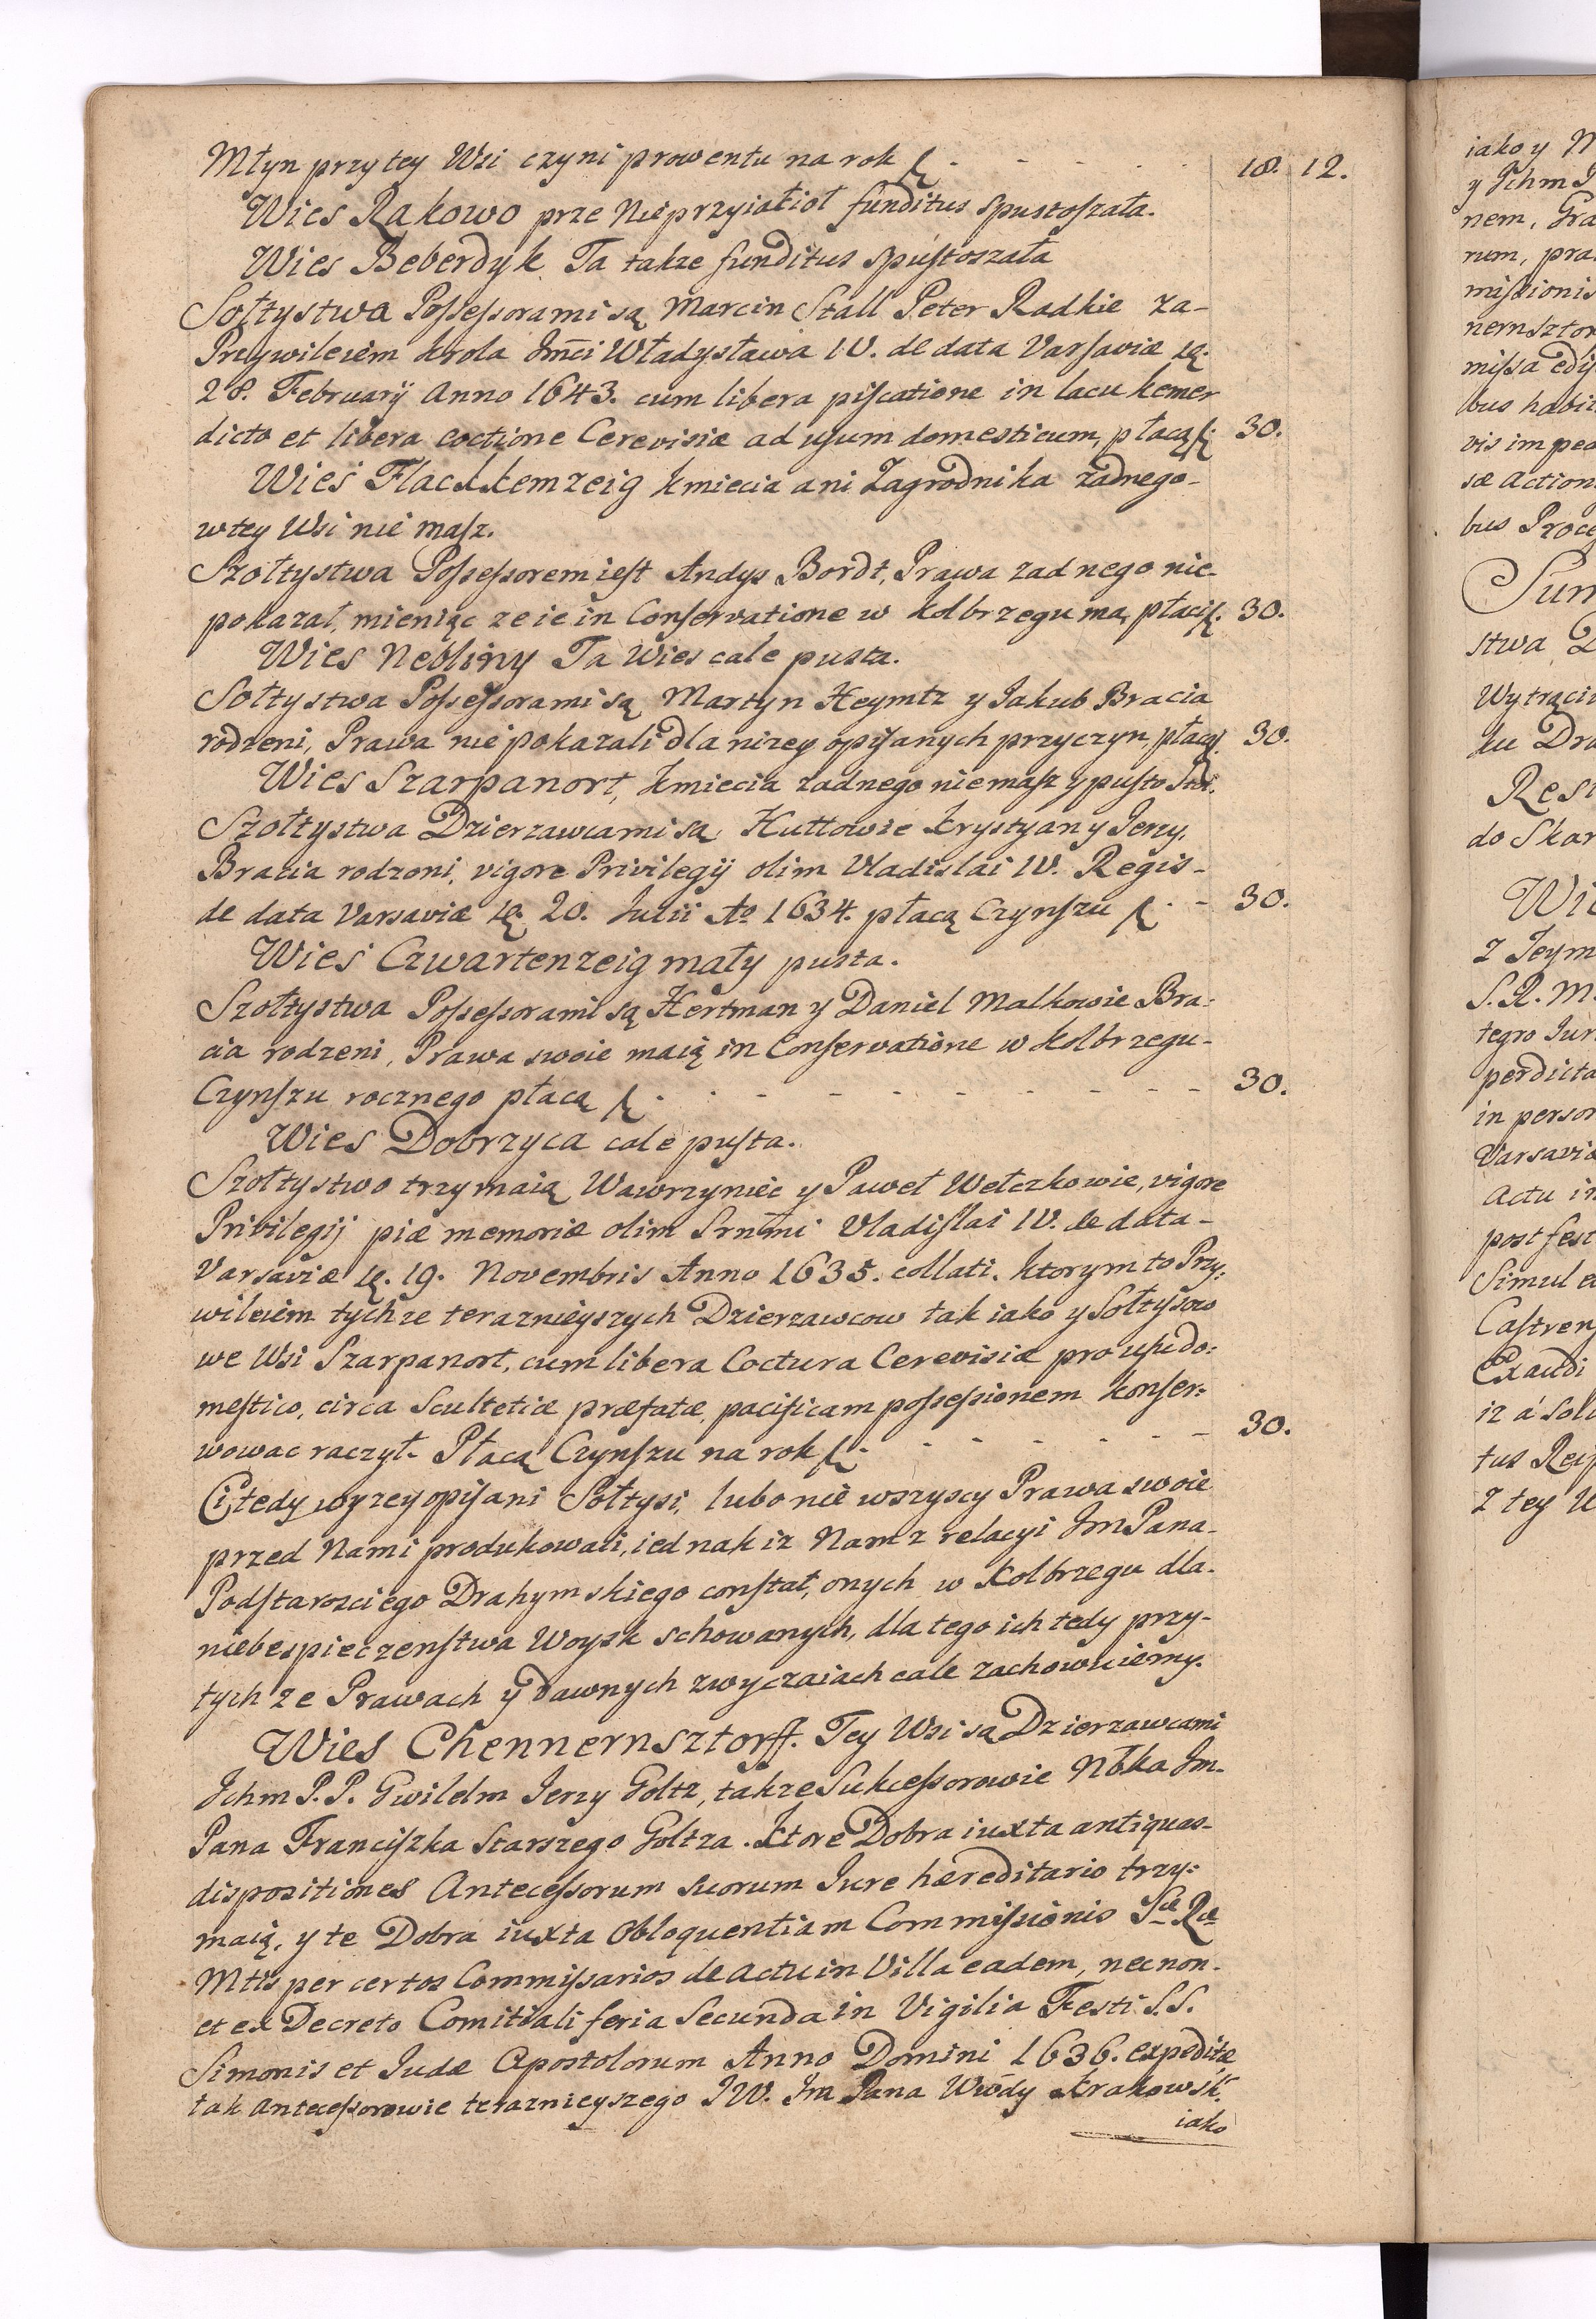 Młyn przy tey Wsi czyni prowentu na rok f. - - - - 18. 12.
Wies Rakowo prze Nieprzyiatiol funditus spustoszała.
Wies Beberdyk Ta takze funditus spustoszała
Sołtystwa Possessorami są Marcin Stall Peter Radkie za-
Przywileiem krola Jmći Władysława IV. de data Varsaviæ
28. February Anno 1643. cum libera piscatione in lacu kemer
dicto et libera coctione Cerevisiæ ad usum domesticum, płacą f. 30.
Wies Flackkemzeig kmiecia ani Zagrodnika zadnego-
w tey Wsi nie masz.
Szołtystwa Possessorem iest Andys Bordt, Prawa zadnego nie-
pokazał, mieniąc ze ie in Conservatione w kolbrzegu ma, płaci f. 30.
Wies Nebliny Ta Wies cale pusta.
Sołtystwa Possessorami są Martyn Heymtz y Jakub Bracia
rodzeni, Prawa nie pokazali dla nizey opisanych przyczyn, płacą f. 30.
Wies Szarpanort, kmiecia zadnego niemasz y pusto stoi.
Szołtystwa Dzierzawcami są Huttowie Krystyan y Jerzy,
Bracia rodzoni, vigore Privilegij olim Vladislai IV. Regis-
de data Varsaviæ 20. Julii Ao 1634. płacą Czynszu f. - 30.
Wies Czwartenzeig mały pusta.
Szołtystwa Possessorami są Hertman y Daniel Malkowie Bra:
cia rodzeni, Prawa swoie maią in Conservatione w kolbrzegu-
Czynszu rocznego płacą f. - - - - - - - - 30.
Wies Dobrzyca cale pusta.
Szołtystwo trzymaią Wawrzyniec y Paweł Wełczkowie, vigore
Privilegij piæ memoriæ olim Srnmi Vladislai IV. de data-
Varsaviæ 19. Novembris Anno 1635. collati. ktorym to Przy:
wileiem tychze teraznieyszych Dzierzawcow tak iako y Sołtysow
we Wsi Szarpanort, cum libera Coctura Cerevisiæ pro usu do:
mestico, circa Scultetiæ præfatæ, pacificam possessionem konser:
wowac raczył. Płacą Czynszu na rok f. - - - - - - 30.
Ci tedy wyzey opisani Sołtysi, lubo nie wszyscy Prawa swoie
przed Nami produkowali, iednak iz Nam z relacyi Jm Pana-
Podstarosciego Drahymskiego constat, onych w Kolbrzegu dla-
niebespieczenstwa Woysk schowanych, dla tego ich tedy przy-
tych ze Prawach y dawnych zwyczaiach cale zachowuiemy.
Wies Chennernsztorff. Tey Wsi są Dzierzawcami
Ichm P.P. Gwilelm Jerzy Goltz, takze Sukcessorowie Nbka Jm.
Pana Franciszka Starszego Goltza. Ktore Dobra iuxta antiquas-
dispositiones Antecessorum suorum Jure hæreditario trzy:
maią, y te Dobra iuxta Obloquentiam Commissionis Sæ Ræ
Mtis per certos Commissarios de actu in Villa eadem, necnon-
et ex Decreto Comitiali feria Secunda in Vigilia Festi S.S.
Simonis et Judæ Apostolorum Anno Domini 1636. expeditæ
tak Antecessorowie teraznieyszego JW. Jm Pana Wwody Krakowsk.
iako